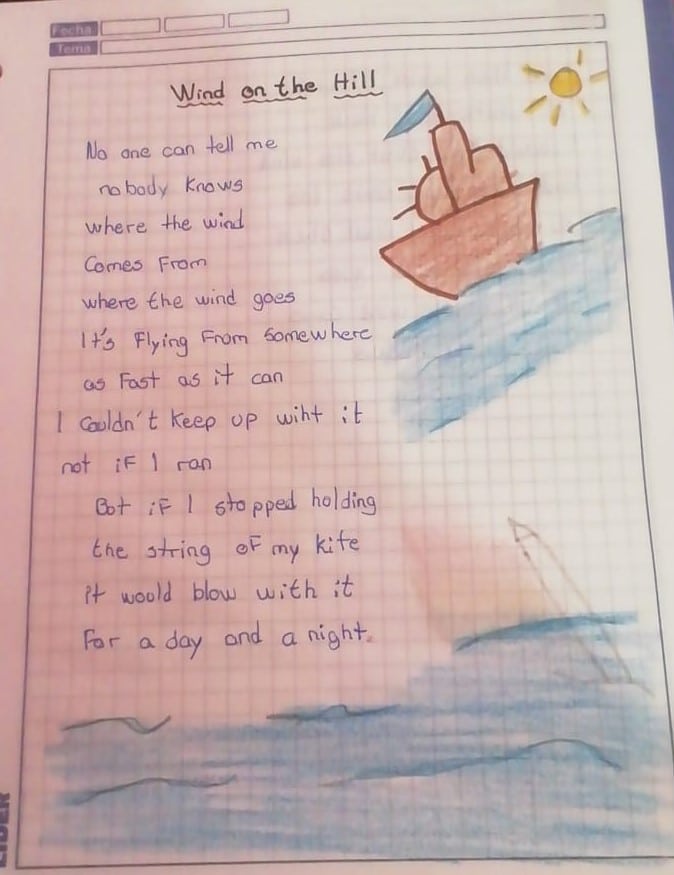 Fecha
Tema
Wind on the Hill
No one can tell me
nobody knows
where the wind
Comes From
where the wind goes
It's Flying From Somewhere
as Fast as it can
I Couldn't Keep up wiht it
not iF I ran
But iF I stopped holding
the string oF my kite
it would blow with it
For a day and a night.
LIDER